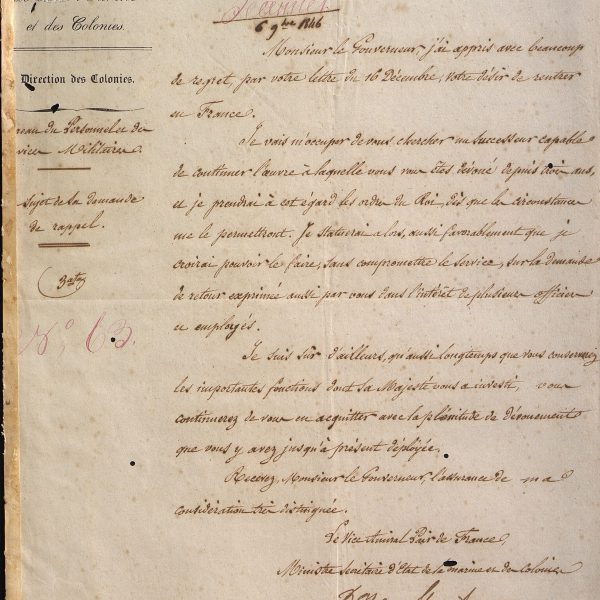 et des Colonies.
Direction des Colonies.
du Personnel et des
Militaires
Sujet de la demande
de rappel.
N° 63.
6 9bre 1846
Monsieur le Gouverneur, j'ai appris avec beaucoup
de regret, par votre lettre du 16 Décembre, votre désir de rentrer
en France.
Je vais m'occuper de vous chercher un successeur capable
de continuer l'œuvre à laquelle vous vous êtes dévoué depuis trois ans,
et je prendrai à cet égard les ordres du Roi, dès que les circonstances
me le permettront. Je statuerai alors, aussi favorablement que je
croirai pouvoir le faire, sans compromettre le service, sur la demande
de retour exprimée aussi par vous dans l'intérêt de plusieurs officiers
et employés.
Je suis sûr d'ailleurs, qu'aussi longtemps que vous conserverez
les importantes fonctions dont Sa Majesté vous a investi, vous
continuerez de vous en acquitter avec la plénitude de dévouement
que vous y avez jusqu'à présent déployée.
Recevez, Monsieur le Gouverneur, l'assurance de ma
considération très distinguée.
Le Vice Amiral Pair de France,
Ministre Secrétaire d'Etat de la marine et des Colonies